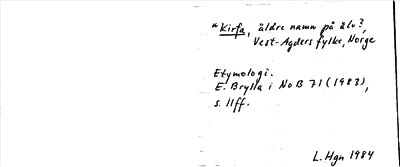 * Kirfa, äldre namn på älv?,
Vest-Agders fylke, Norge
Etymologi.
E. Brylla i NoB 71 (1983),
s. 11ff.
L. Hgn 1984